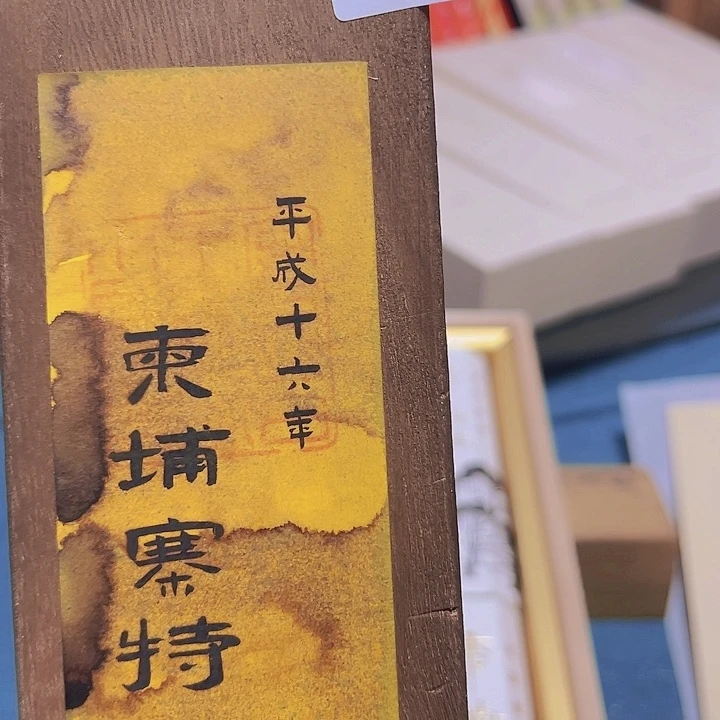 平成十六年
柬埔寨特